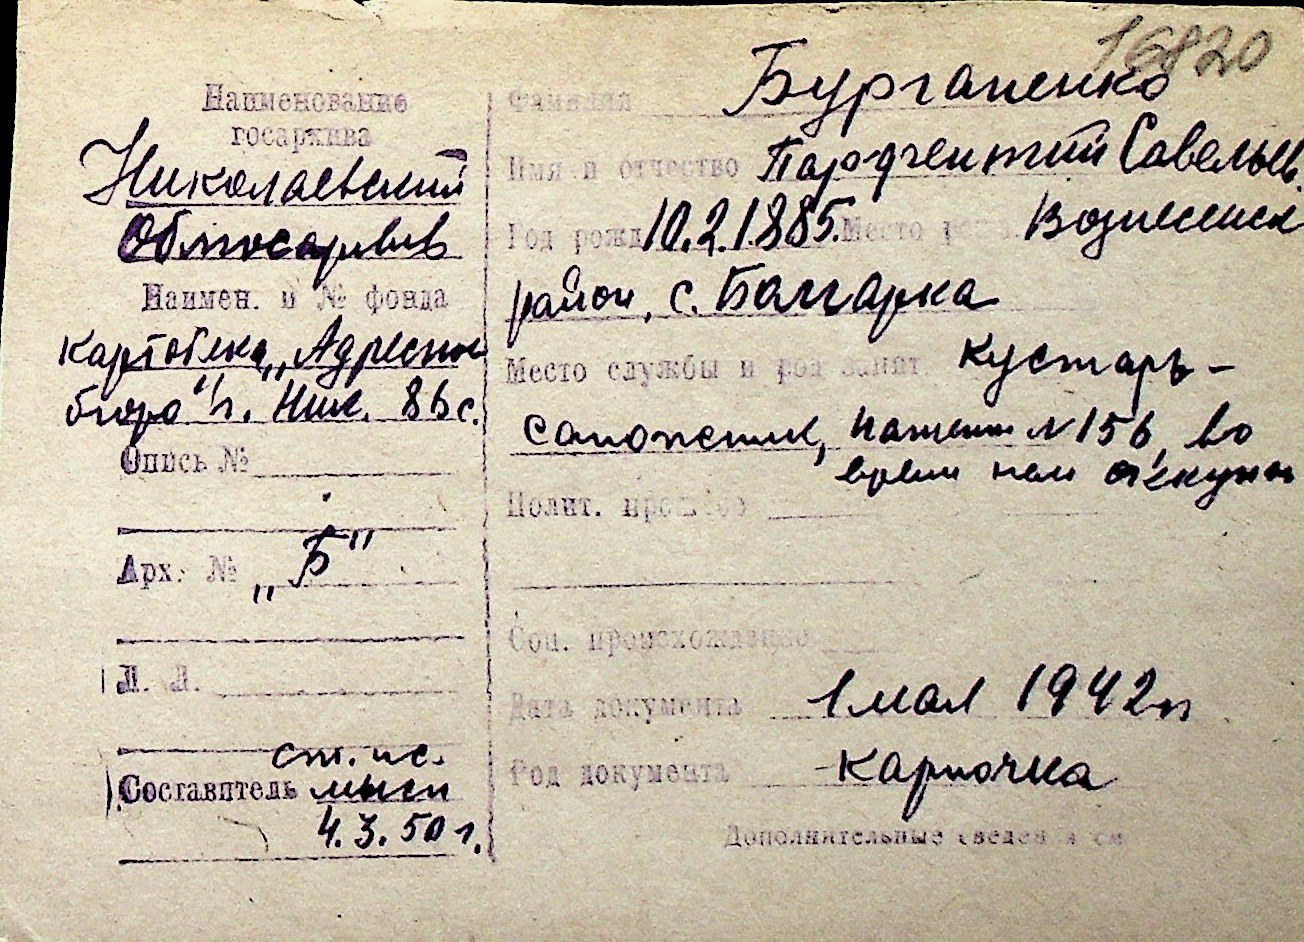 16820
Наименование
госархива
Николаевский
Облгосархив
Наимен. и № фонда
картотека "Адресное
бюро" г. Ник. 86 с.
Опись №
Арх. № "Б"
Л. Л.
ст. пс.
Составитель
4.3.50 г.
Фамилия Бурганенко
Имя и отчество Савельев.
Год рожд 10.2.1885. Место рожд. Вознесенск
район, с. Болгарка
Место службы и род занят кустарь-
сапожник, патент №156, во
время нем оккупац
Полит. прошлое
Соц. происхождение
Дата документа 1 мая 1942 г
Род документа карточка
Дополнительные сведен я см